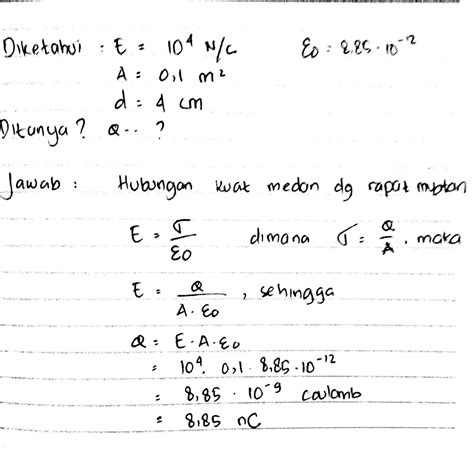 Diketahui : E = 10⁴ N/C ε0 = 8,85 · 10⁻¹²
A = 0,1 m²
d = 4 cm
Ditanya? Q... ?
Jawab : Hubungan kuat medan dg rapat muatan
E = σ/ε0 dimana σ = Q/A , maka
E = Q/(A · ε0) , sehingga
Q = E · A · ε0
= 10⁴ . 0,1 . 8,85 . 10⁻¹²
= 8,85 . 10⁻⁹ coulomb
= 8,85 nC